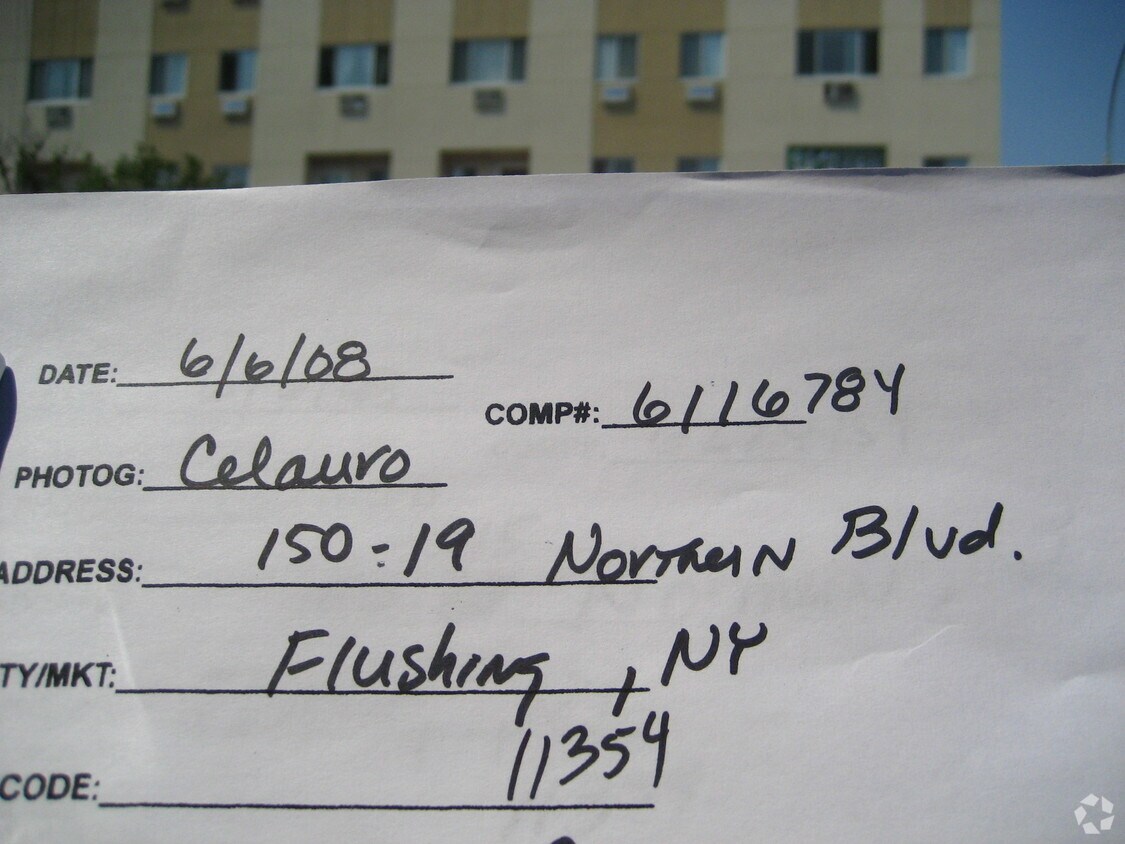 DATE: 6/6/08
COMP#: 6116784
PHOTOG: Celauro
ADDRESS: 150-19 Northern Blvd.
TY/MKT: Flushing, NY
CODE: 11354